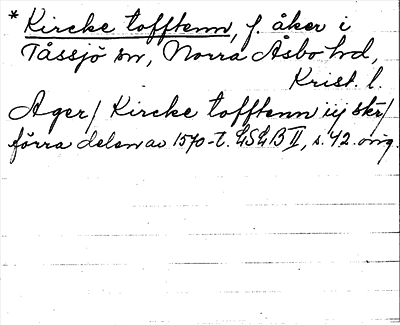 * Kircke tofftenn, f. åker i
Tåssjö sn, Norra Åsbo hd,
Krist. l.
Ager/ Kircke tofftenn iij skr/
förra delen av 1570-t. LSLB II, s. 42. orig.